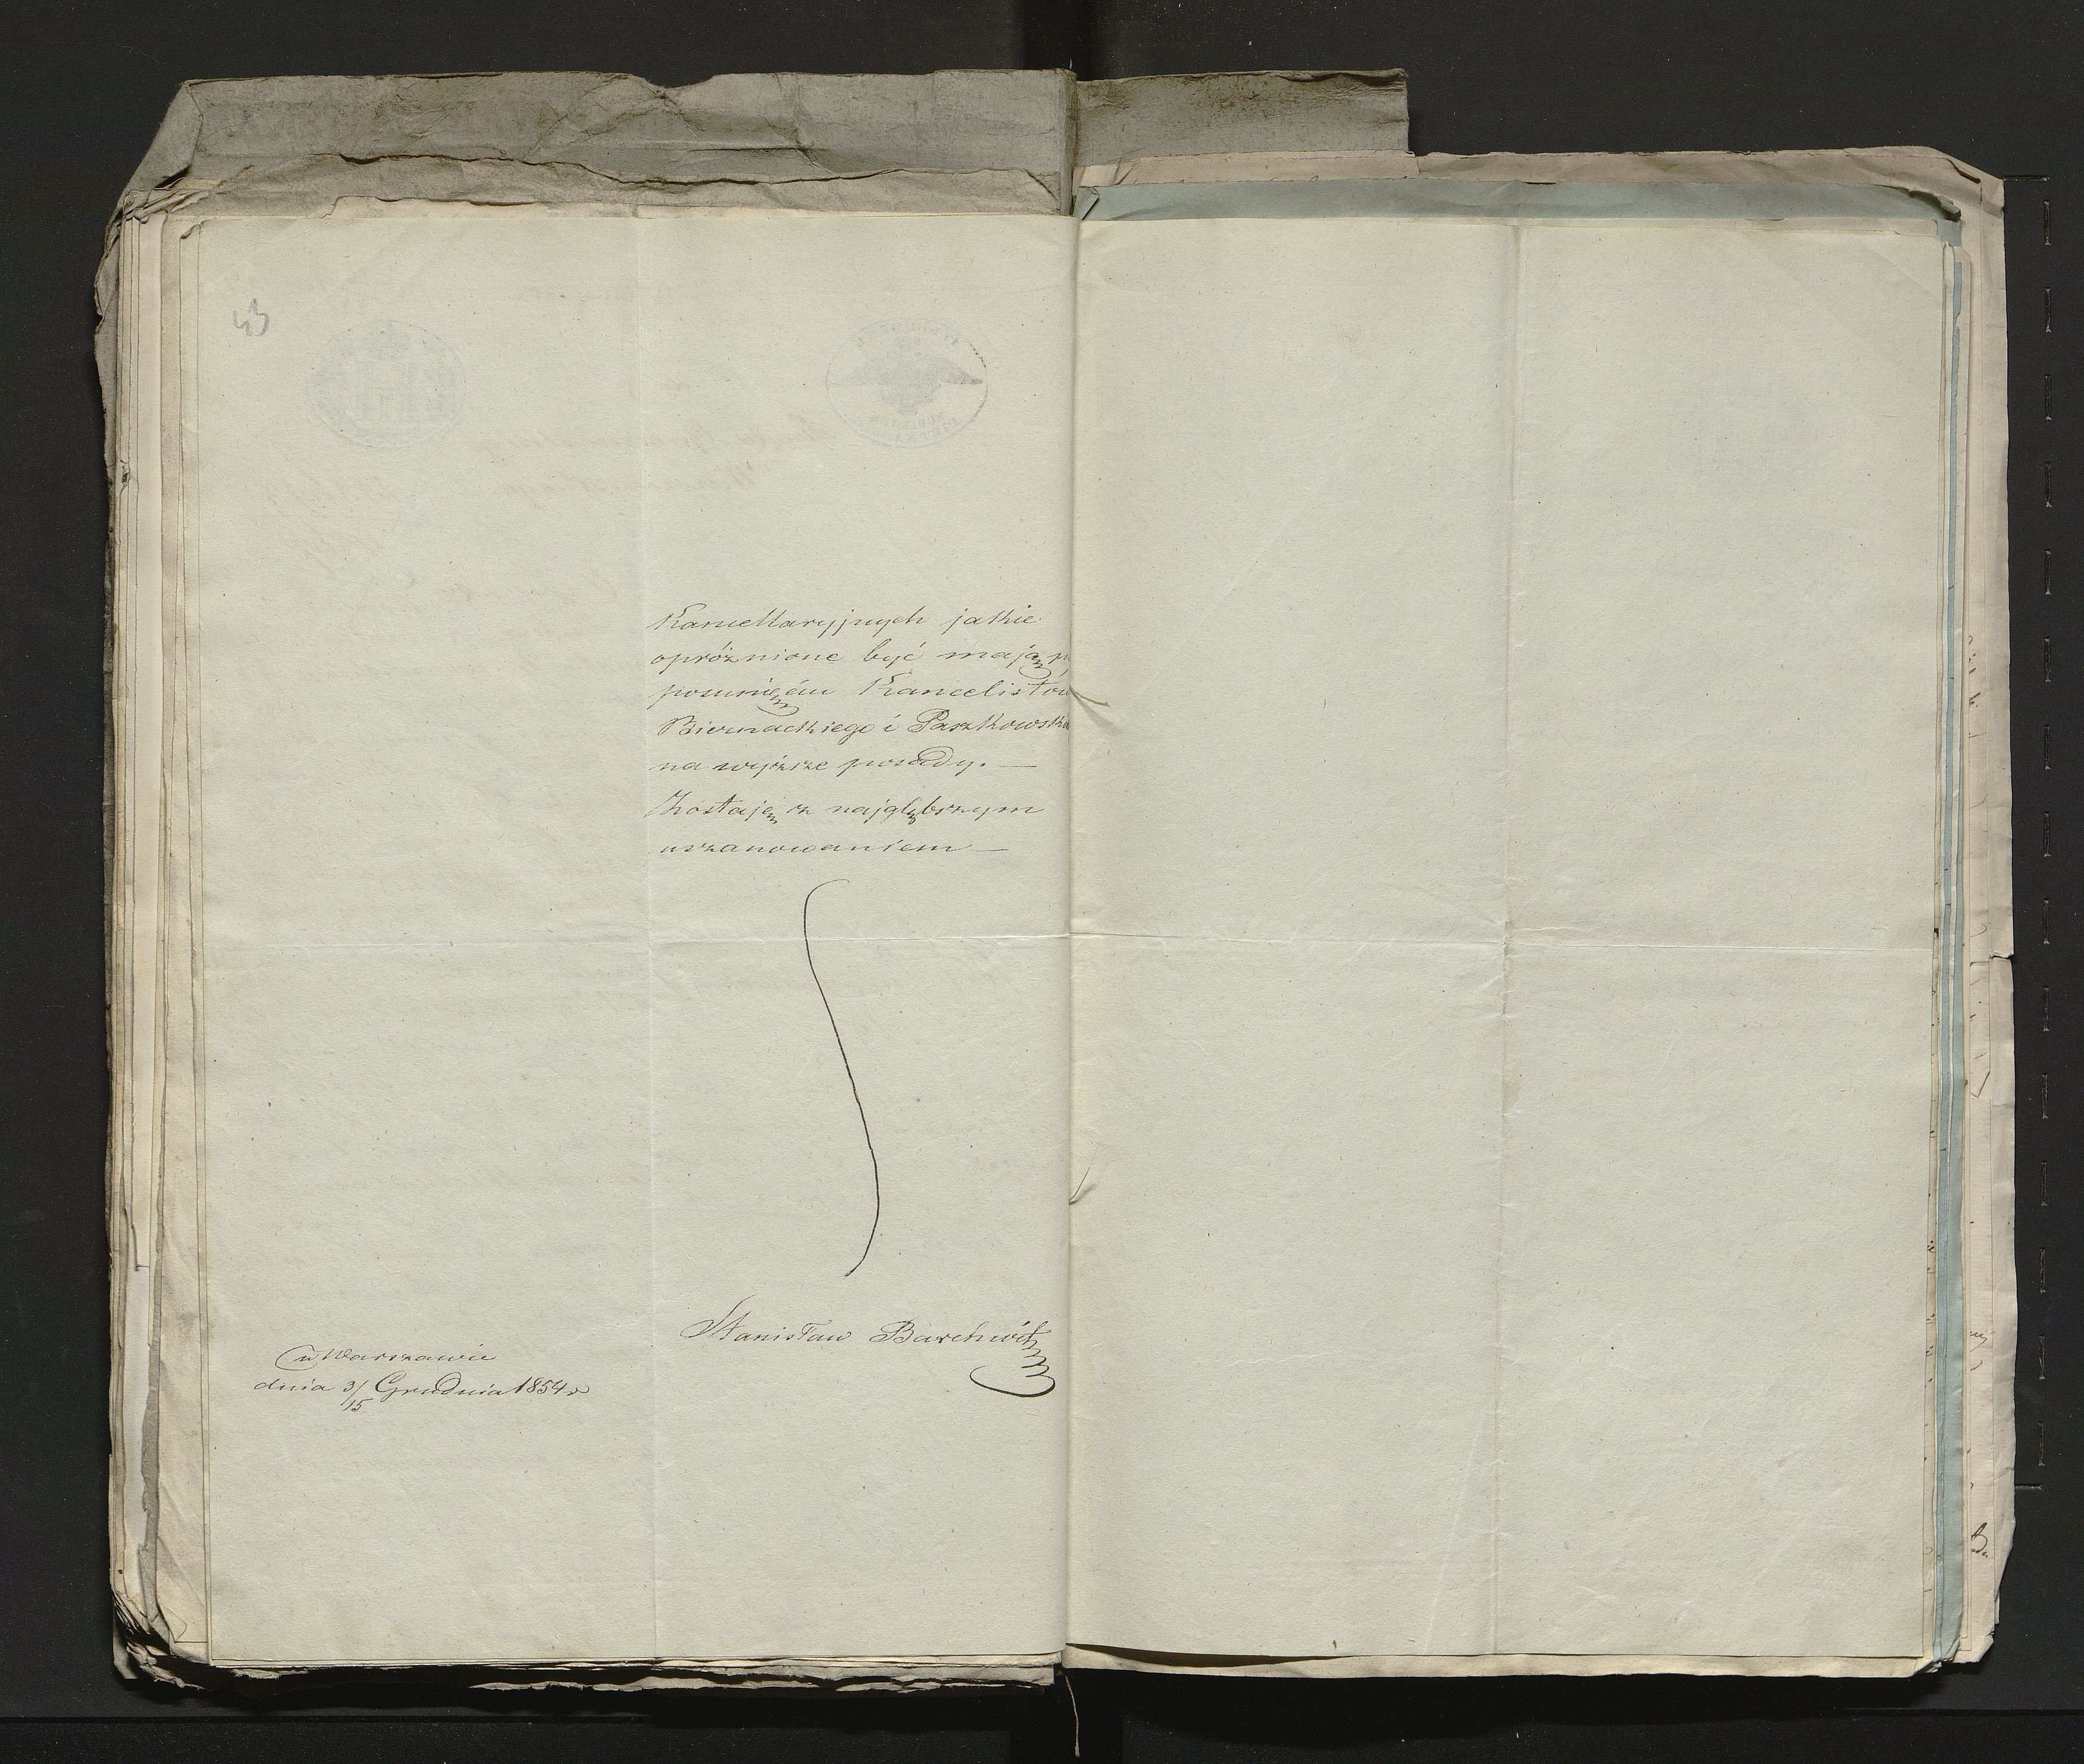 43
Kancellaryjnych jakie
opróżnione być mają
posunięciu Kancelistów
Biernackiego i Paszkowskie
na wyższe posady. —
Zostaję z najgłębszym
uszanowaniem —
Stanisław
w Warszawie
dnia 3/15 Grudnia 1854 r